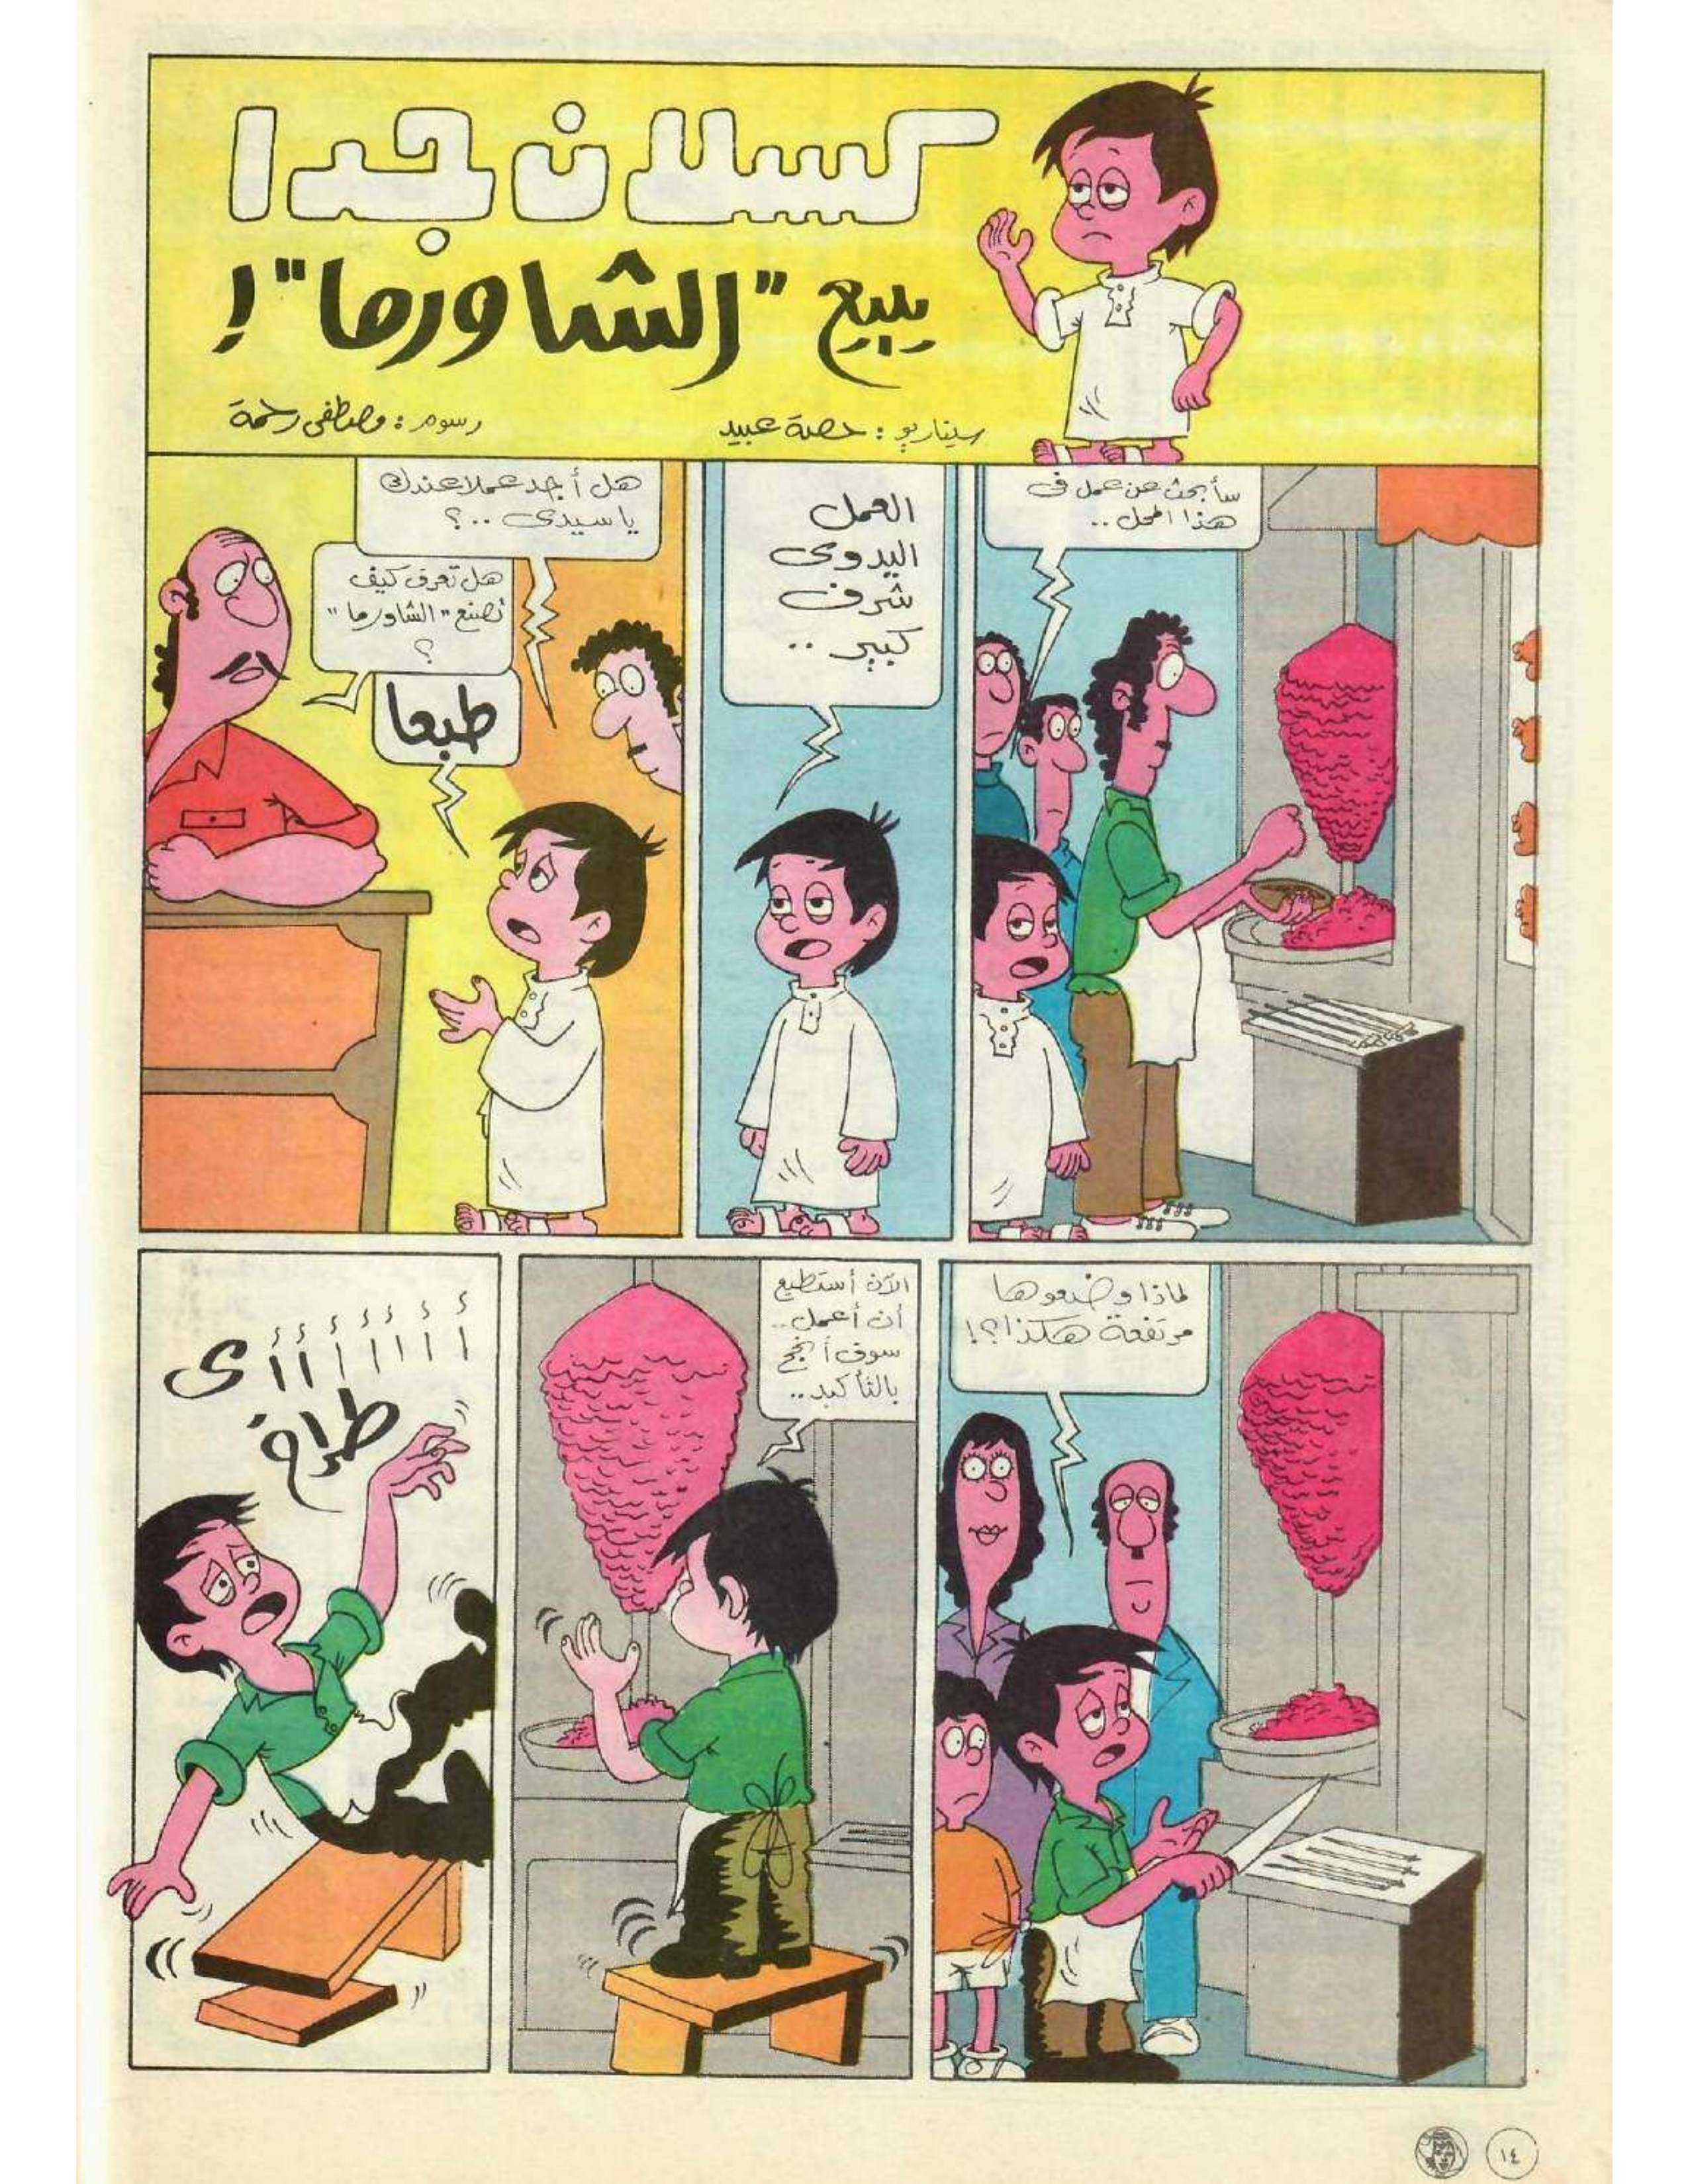 كسلان جدا
يبيع "الشاورما"!
سيناريو : حصة عبيد
رسوم : مصطفى رحمة
سأبحث عن عمل فى
هذا المحل ..
العمل
اليدوى
شرف
كبير ..
هل أجد عملا عندك
يا سيدى ..؟
هل تعرف كيف
تصنع "الشاورما"
؟
طبعا
لماذا وضعوها
مرتفعة هكذا؟!
الآن أستطيع
أن أعمل..
سوف أنجح
بالتأكيد ..
أأأأأأأى
طراخ
١٤